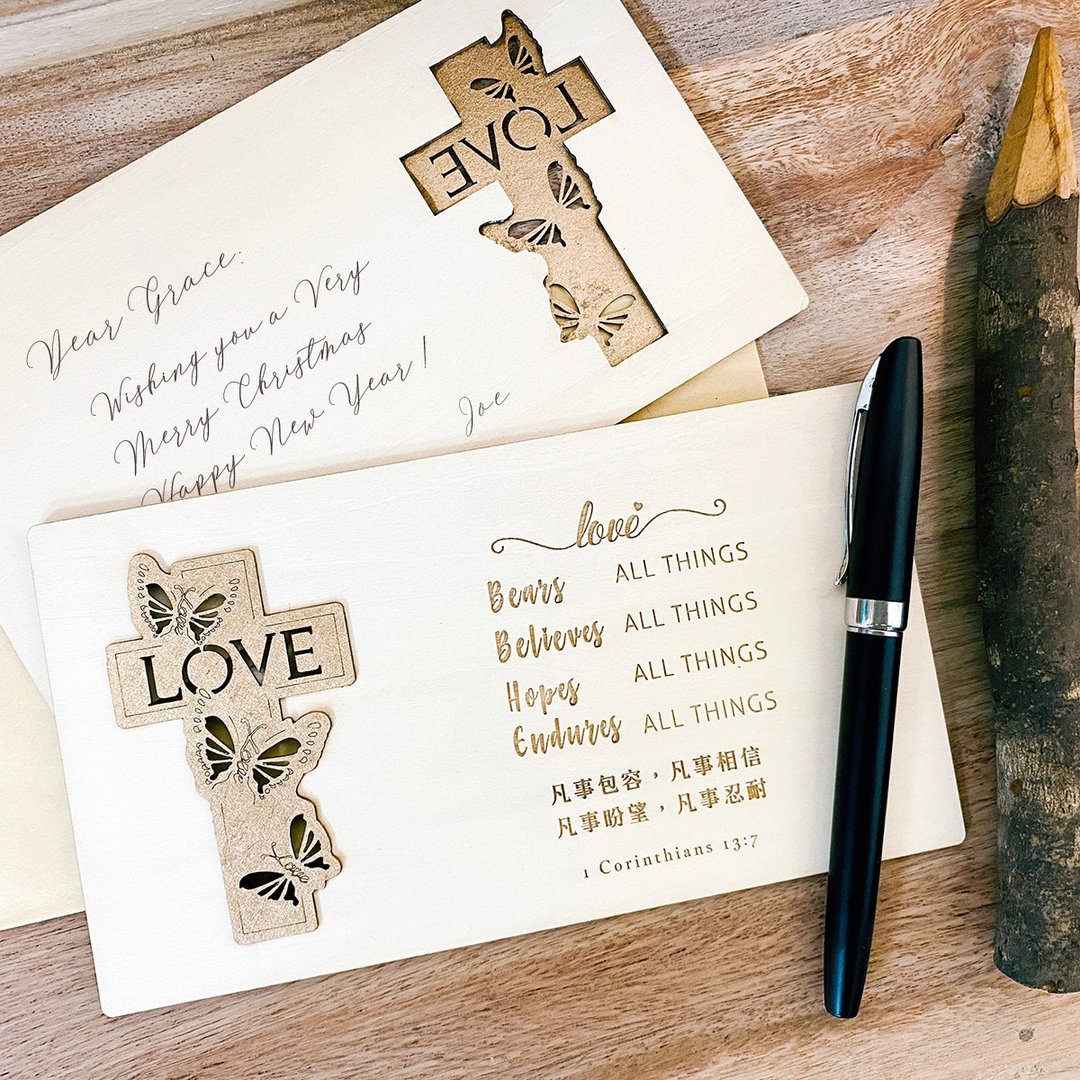 LOVE
Dear Grace:
Wishing you a Very
Merry Christmas
Happy New Year!
Joe
love
Bears ALL THINGS
Believes ALL THINGS
Hopes ALL THINGS
Endures ALL THINGS
凡事包容，凡事相信
凡事盼望，凡事忍耐
1 Corinthians 13:7
Love
LOVE
Love
Love